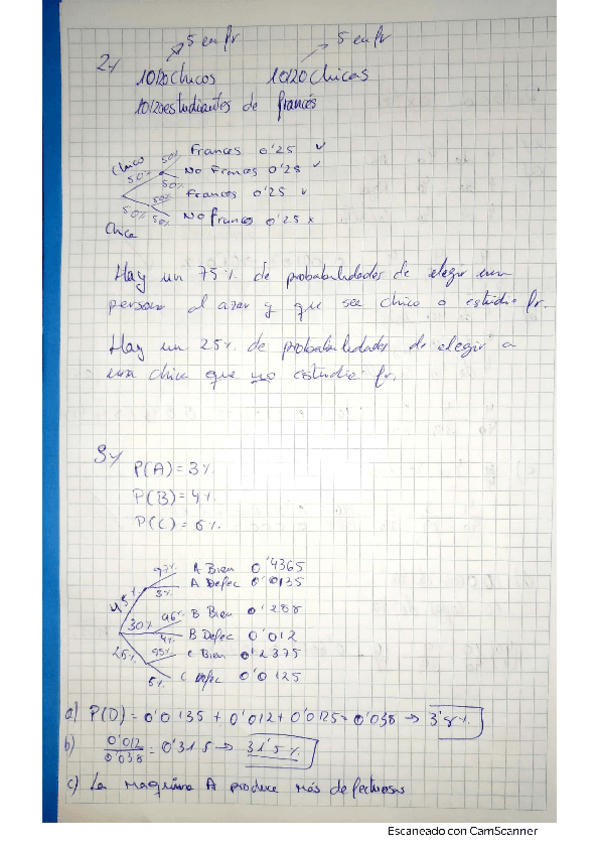 5 en fr 5 en fr
2-/
10/20 chicos 10/20 chicas
10/20 estudiantes de francés
Chico 50% 50% Frances 0'25 ✓
50% No Frances 0'25 ✓
50% 50% Frances 0'25 ✓
Chica 50% No frances 0'25 x
Hay un 75% de probabilidades de elegir una
persona al azar y que sea chico o estudie fr.
Hay un 25% de probabilidades de elegir a
una chica que no estudie fr.
3-/
P(A) = 3%
P(B) = 4%
P(C) = 5%
45% 97% A Bien 0'4365
3% A Defec 0'0135
30% 96% B Bien 0'288
4% B Defec 0'012
25% 95% C Bien 0'2375
5% C Defec 0'0125
a) P(D) = 0'0135 + 0'012 + 0'0125 = 0'038 → 3'8%
b) 0'012
0'038 = 0'315 → 31'5%
c) La maquina A produce más defectuosas
Escaneado con CamScanner